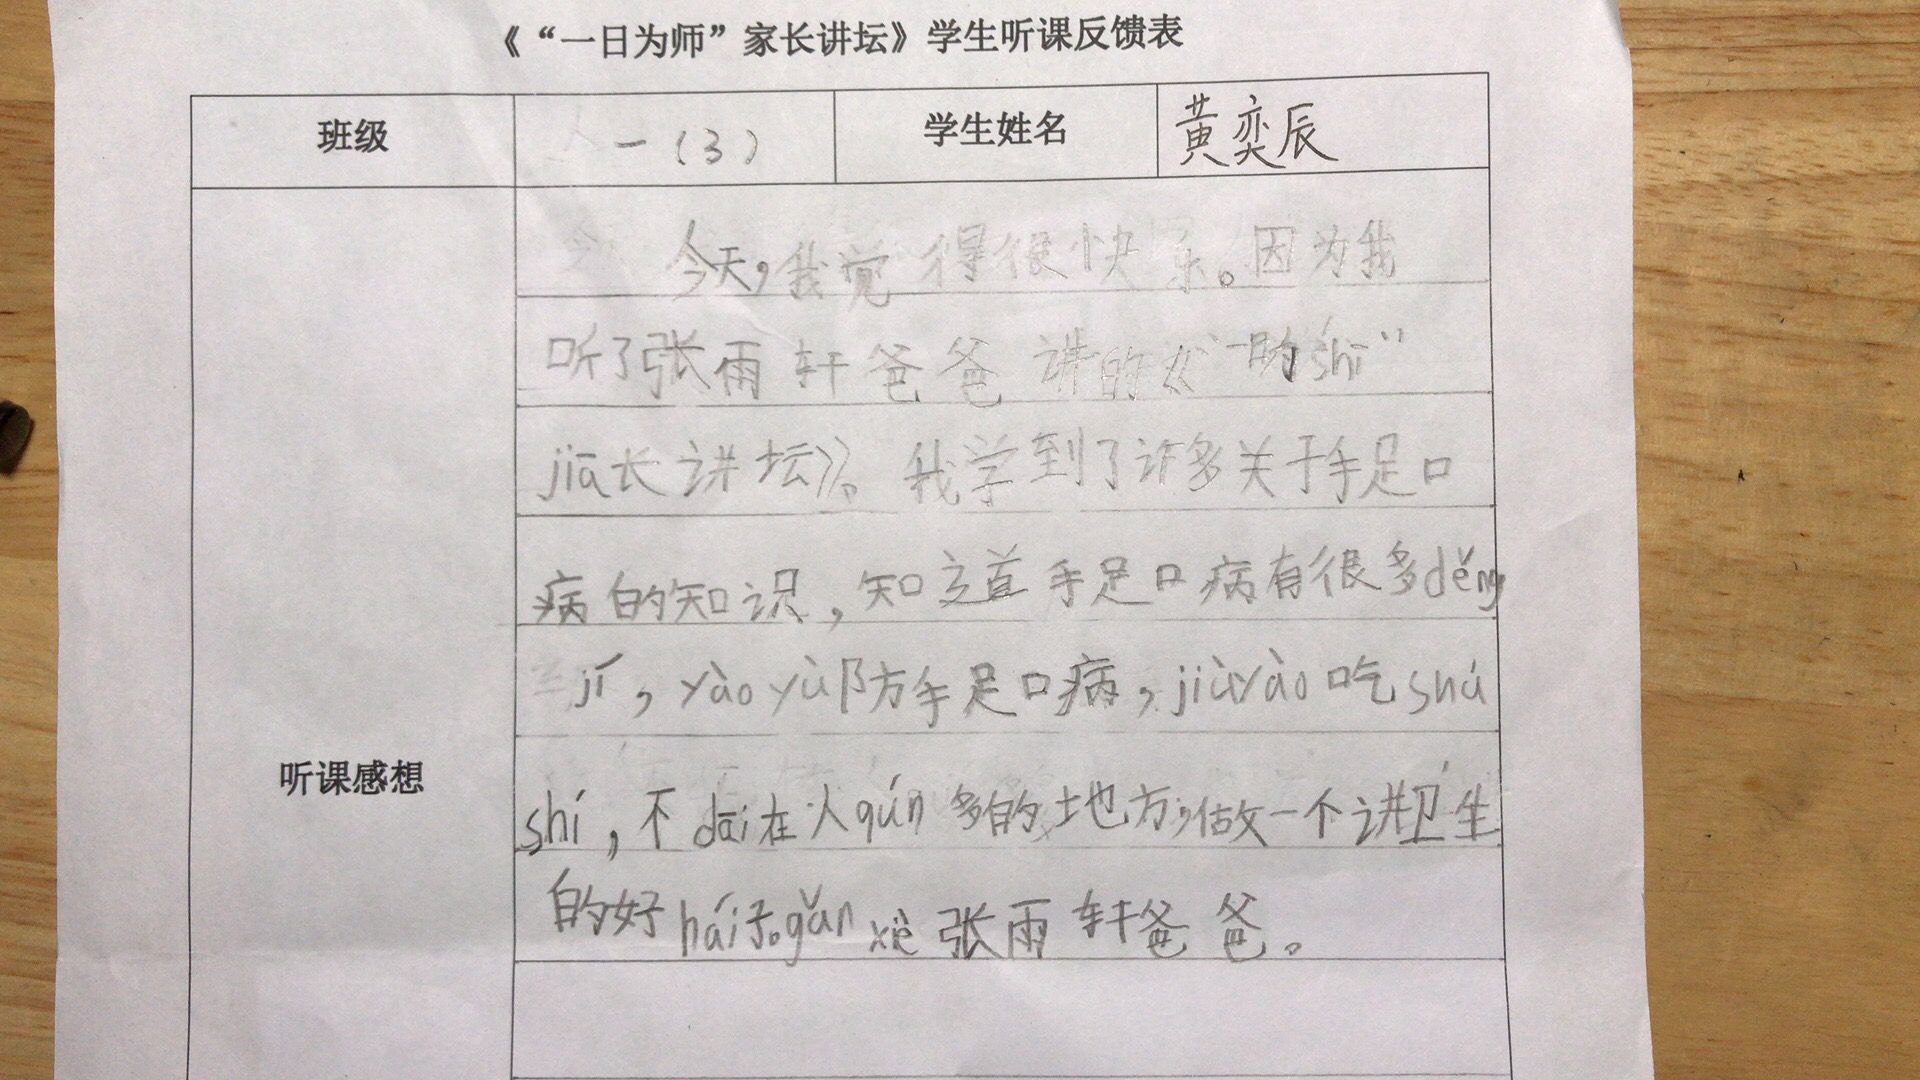 《“一日为师”家长讲坛》学生听课反馈表
班级 一（3） 学生姓名 黄奕辰
今天，我觉得很快乐。因为我
听了张雨轩爸爸讲的《“一日为shī”
jiā长讲坛》。我学到了许多关于手足口
病的知识，知道手足口病有很多děng
jí，yào yù防手足口病，jiùyào吃shú
shí，不dāi在人qún多的地方，做一个讲卫生
的好hái子。gǎn xiè张雨轩爸爸。
听课感想